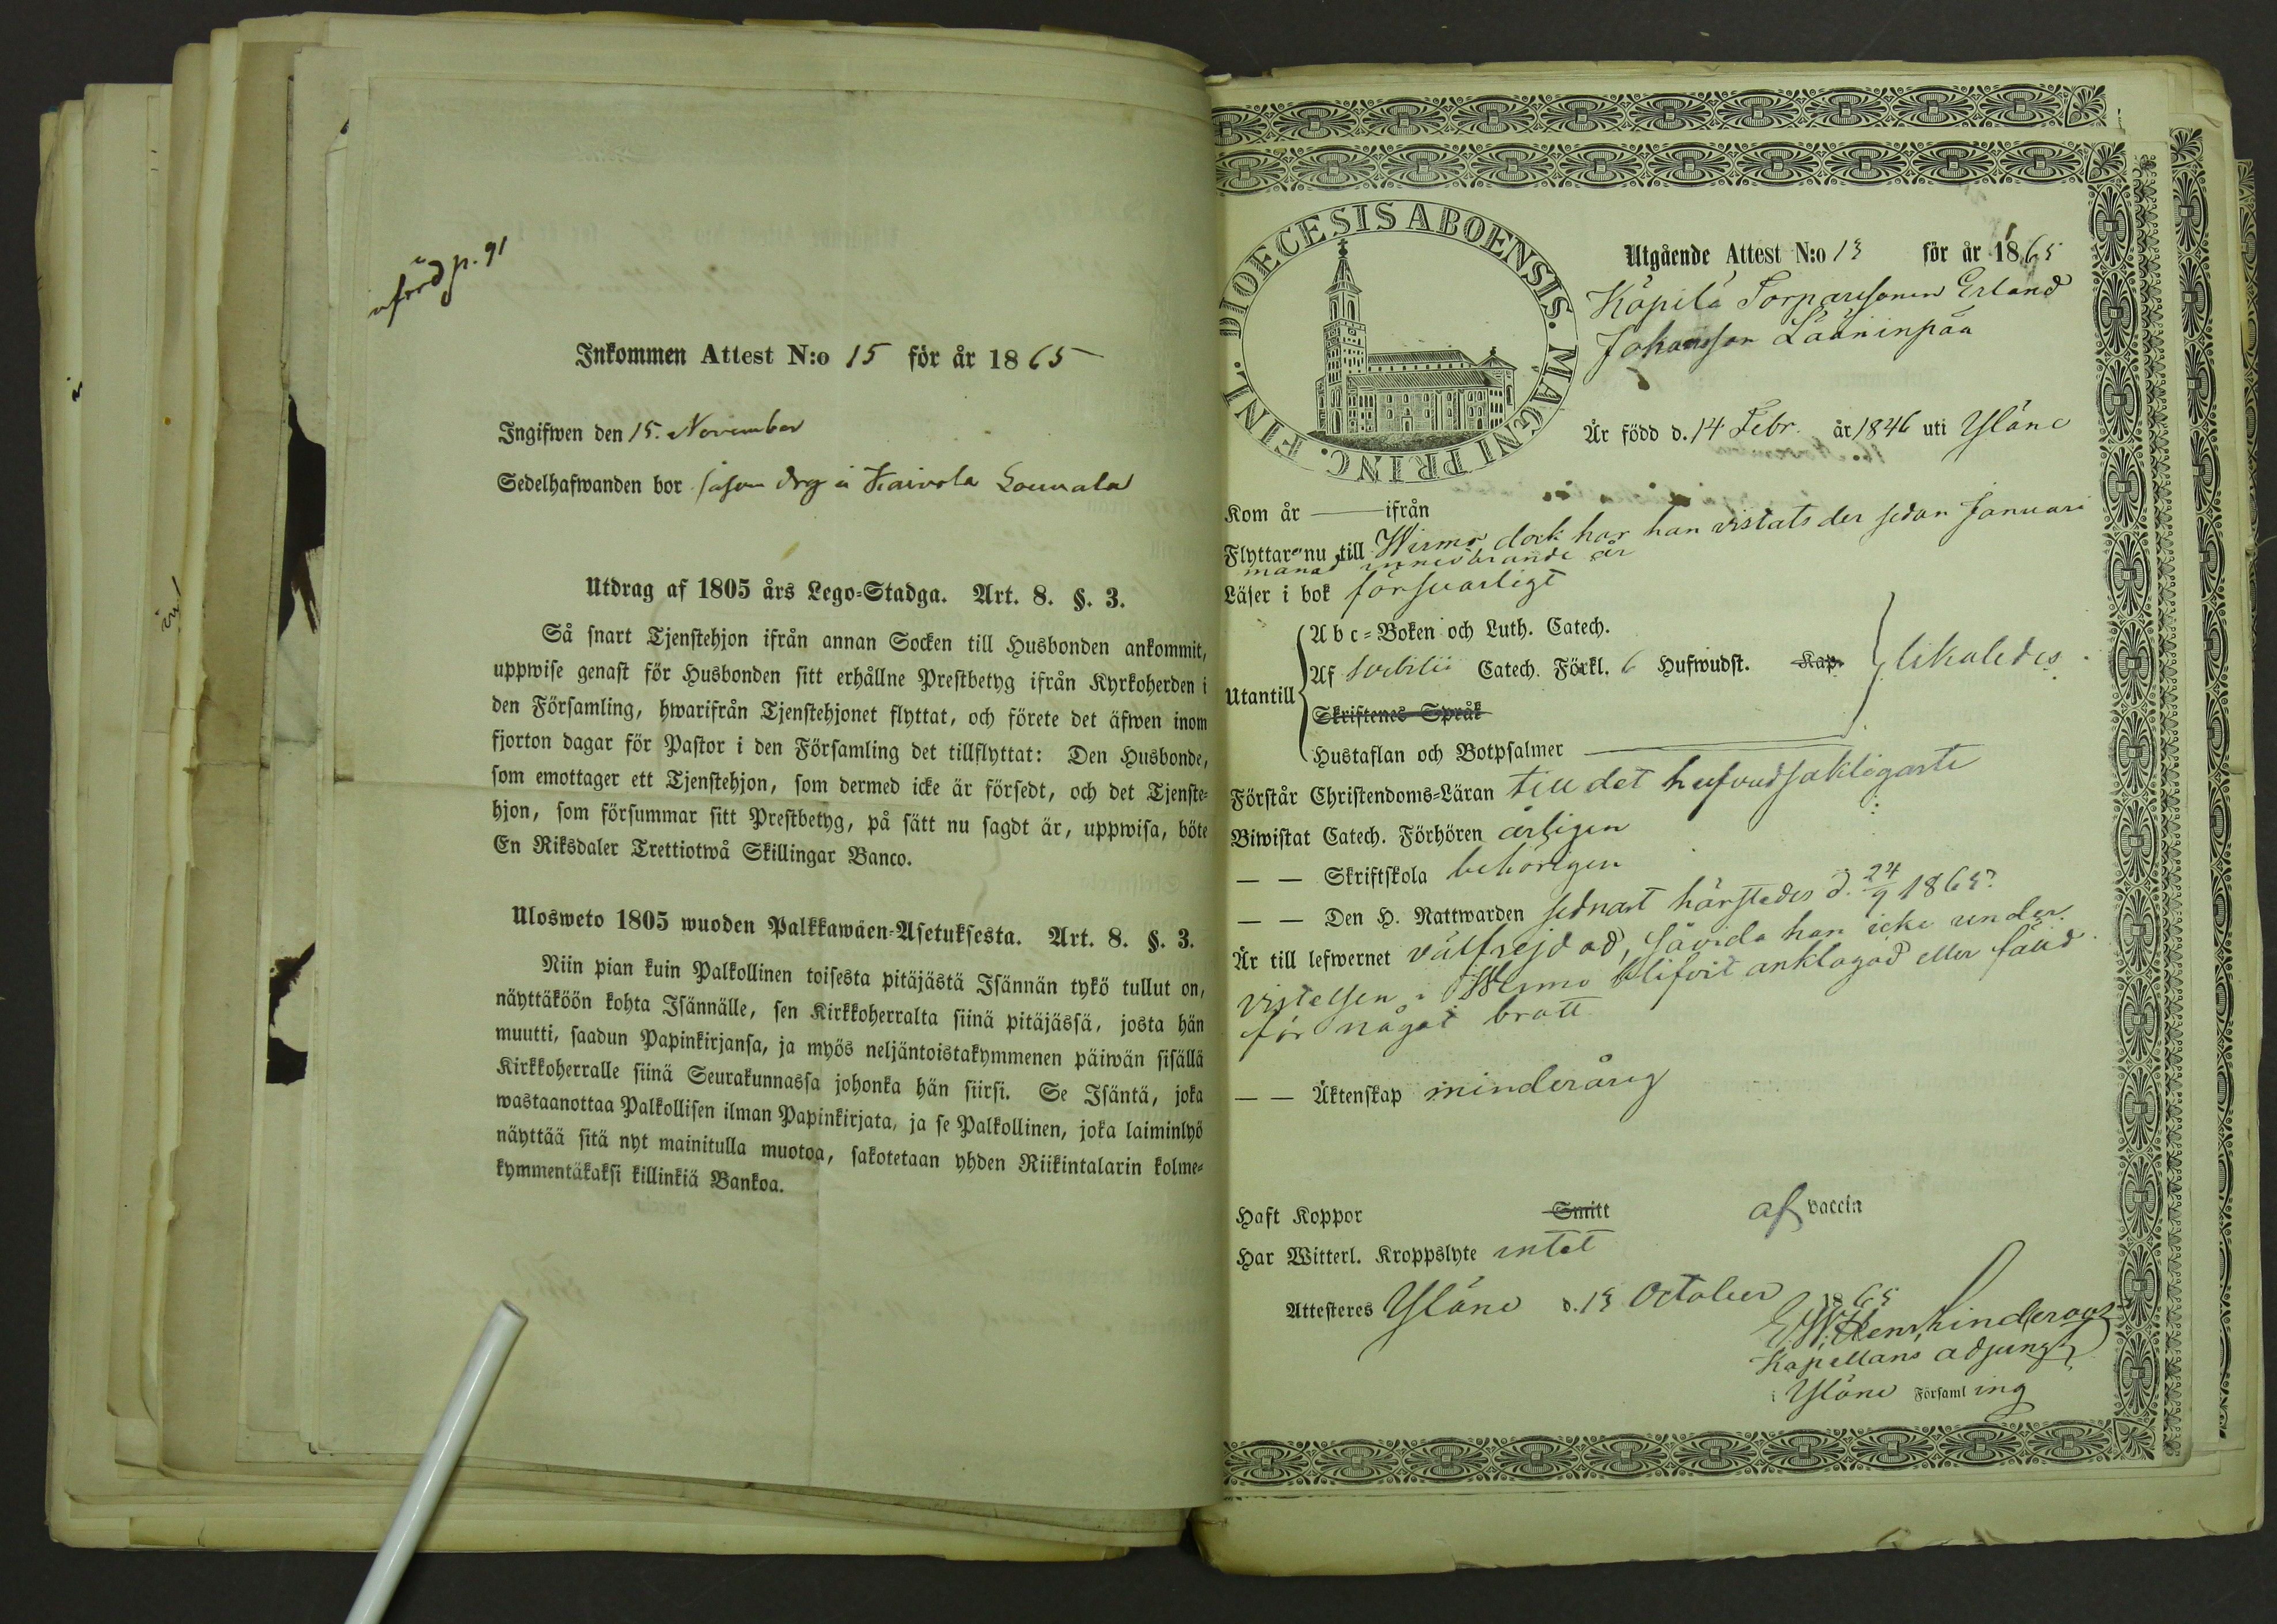 införd p. 91
Inkommen Attest N:o 15 för år 1865
Ingifwen den 15. November
Sedelhafwanden bor såsom drg å Kaivola Louvala
Utdrag af 1805 års Lego-Stadga. Art. 8. §. 3.
Så snart Tjenstehjon ifrån annan Socken till Husbonden ankommit,
uppwise genast för Husbonden sitt erhållne Prestbetyg ifrån Kyrkoherden i
den Församling, hwarifrån Tjenstehjonet flyttat, och förete det äfwen inom
fjorton dagar för Pastor i den Församling det tillflyttat: Den Husbonde,
som emottager ett Tjenstehjon, som dermed icke är försedt, och det Tjenste-
hjon, som försummar sitt Prestbetyg, på sätt nu sagdt är, uppwisa, böte
En Riksdaler Trettiotwå Skillingar Banco.
Ulosweto 1805 wuoden Palkkawäen-Asetuksesta. Art. 8. §. 3.
Niin pian kuin Palkollinen toisesta pitäjästä Isännän tykö tullut on,
näyttäköön kohta Isännälle, sen Kirkkoherralta siinä pitäjässä, josta hän
muutti, saadun Papinkirjansa, ja myös neljäntoistakymmenen päiwän sisällä
Kirkkoherralle siinä Seurakunnassa johonka hän siirsi. Se Isäntä, joka
wastaanottaa Palkollisen ilman Papinkirjata, ja se Palkollinen, joka laiminlyö
näyttää sitä nyt mainitulla muotoa, sakotetaan yhden Riikintalarin kolme-
kymmentäkaksi killinkiä Bankoa.
FINL. DIOECESIS ABOENSIS. MAGNI PRINC.
Utgående Attest N:o 13 för år 1865
Köpilä Torparesonen Erland
Johansson Lääninpää
Är född d. 14 Febr. år 1846 uti Yläne
Kom år — ifrån
Flyttar nu till Wirmo dock har han vistats der sedan Januari
månad innevarande år
Läser i bok försvarligt
Utantill
Abc-Boken och Luth. Catech.
Af Svebilii Catech. Förkl. 6 Hufwudst. Kap. likaledes.
Skriftenes Språk
Hustaflan och Botpsalmer
Förstår Christendoms-Läran till det hufvudsakligaste
Biwistat Catech. Förhören årligen
— — Skriftskola behörigen
— — Den H. Nattwarden sednast härstedes d. 24/9 1865.
Är till lefwernet välfrejdad, såvida han icke under
vistelsen i Wirmo blifvit anklagad eller fälld
för något brott
— — Äktenskap minderårig
Haft Koppor Smitt af vaccin
Har Witterl. Kroppslyte intet
Attesteres Yläne d. 13 October 1865
Kapellans adjunkt
i Yläne Församling